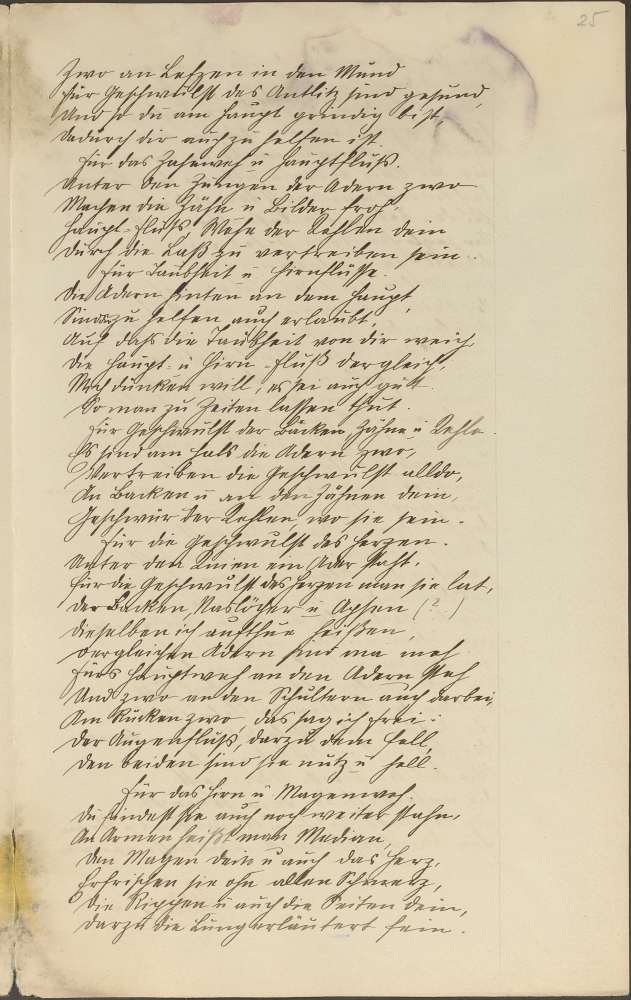 25
Zwo an Lefzen in den Mund
Für Geschwulst des Antlitz sind gesund,
Und so du am Haupt grindig bist,
Dadurch dir auch zu helfen ist.
Für das Zahnweh u Hauptfluß.
Unter den Zungen der Adern zwo
Machen die Zähn u Bilder froh,
Haupt-Fluß, Wehe der Kehlen dein
Durch die Laß zu vertreiben sein.
Für Taubheit u Hirnflüsse.
Die Adern hinten an dem Haupt,
Sind zu helfen auch erlaubt,
Auf daß die Taubheit von dir weich,
Die Haupt- u Hirn-Fluß dergleich,
Mich dunken will, es sei auch gutt
So man zu Zeiten lassen thut.
Für Geschwulst der Backen, Zähne u Kehle.
Es sind am Hals die Adern zwo,
Vertreiben die Geschwulst allda,
An Backen u an den Zähnen dein,
Geschwür der Kehlen, wo sie sein.
Für die Geschwulst des Herzen.
Unter den Knien ein Ader staht,
Für die Geschwulst des Herzen man sie lat,
Der Backen, Naslöcher u Apsen (?)
Dieselben ich aufthue heißen,
Dergleichen Adern sind
Fürs Hauptweh an den Adern steh
Und zwo an den Schultern auch darbei,
Am Rücken zwo, das sag ich frei:
Der Augenfluß, darzu dem Fell,
Den beiden sind sie nutz u hell.
Für das Hirn u Magenweh.
Du findest sie auch noch weiter stahn,
An Armen heißt man Median,
Den Magen dein u auch das Herz,
Erfrischen sie ohn allen Schmerz,
Die Rippen u auch die Seiten dein,
Darzu die Lung erläutert fein.